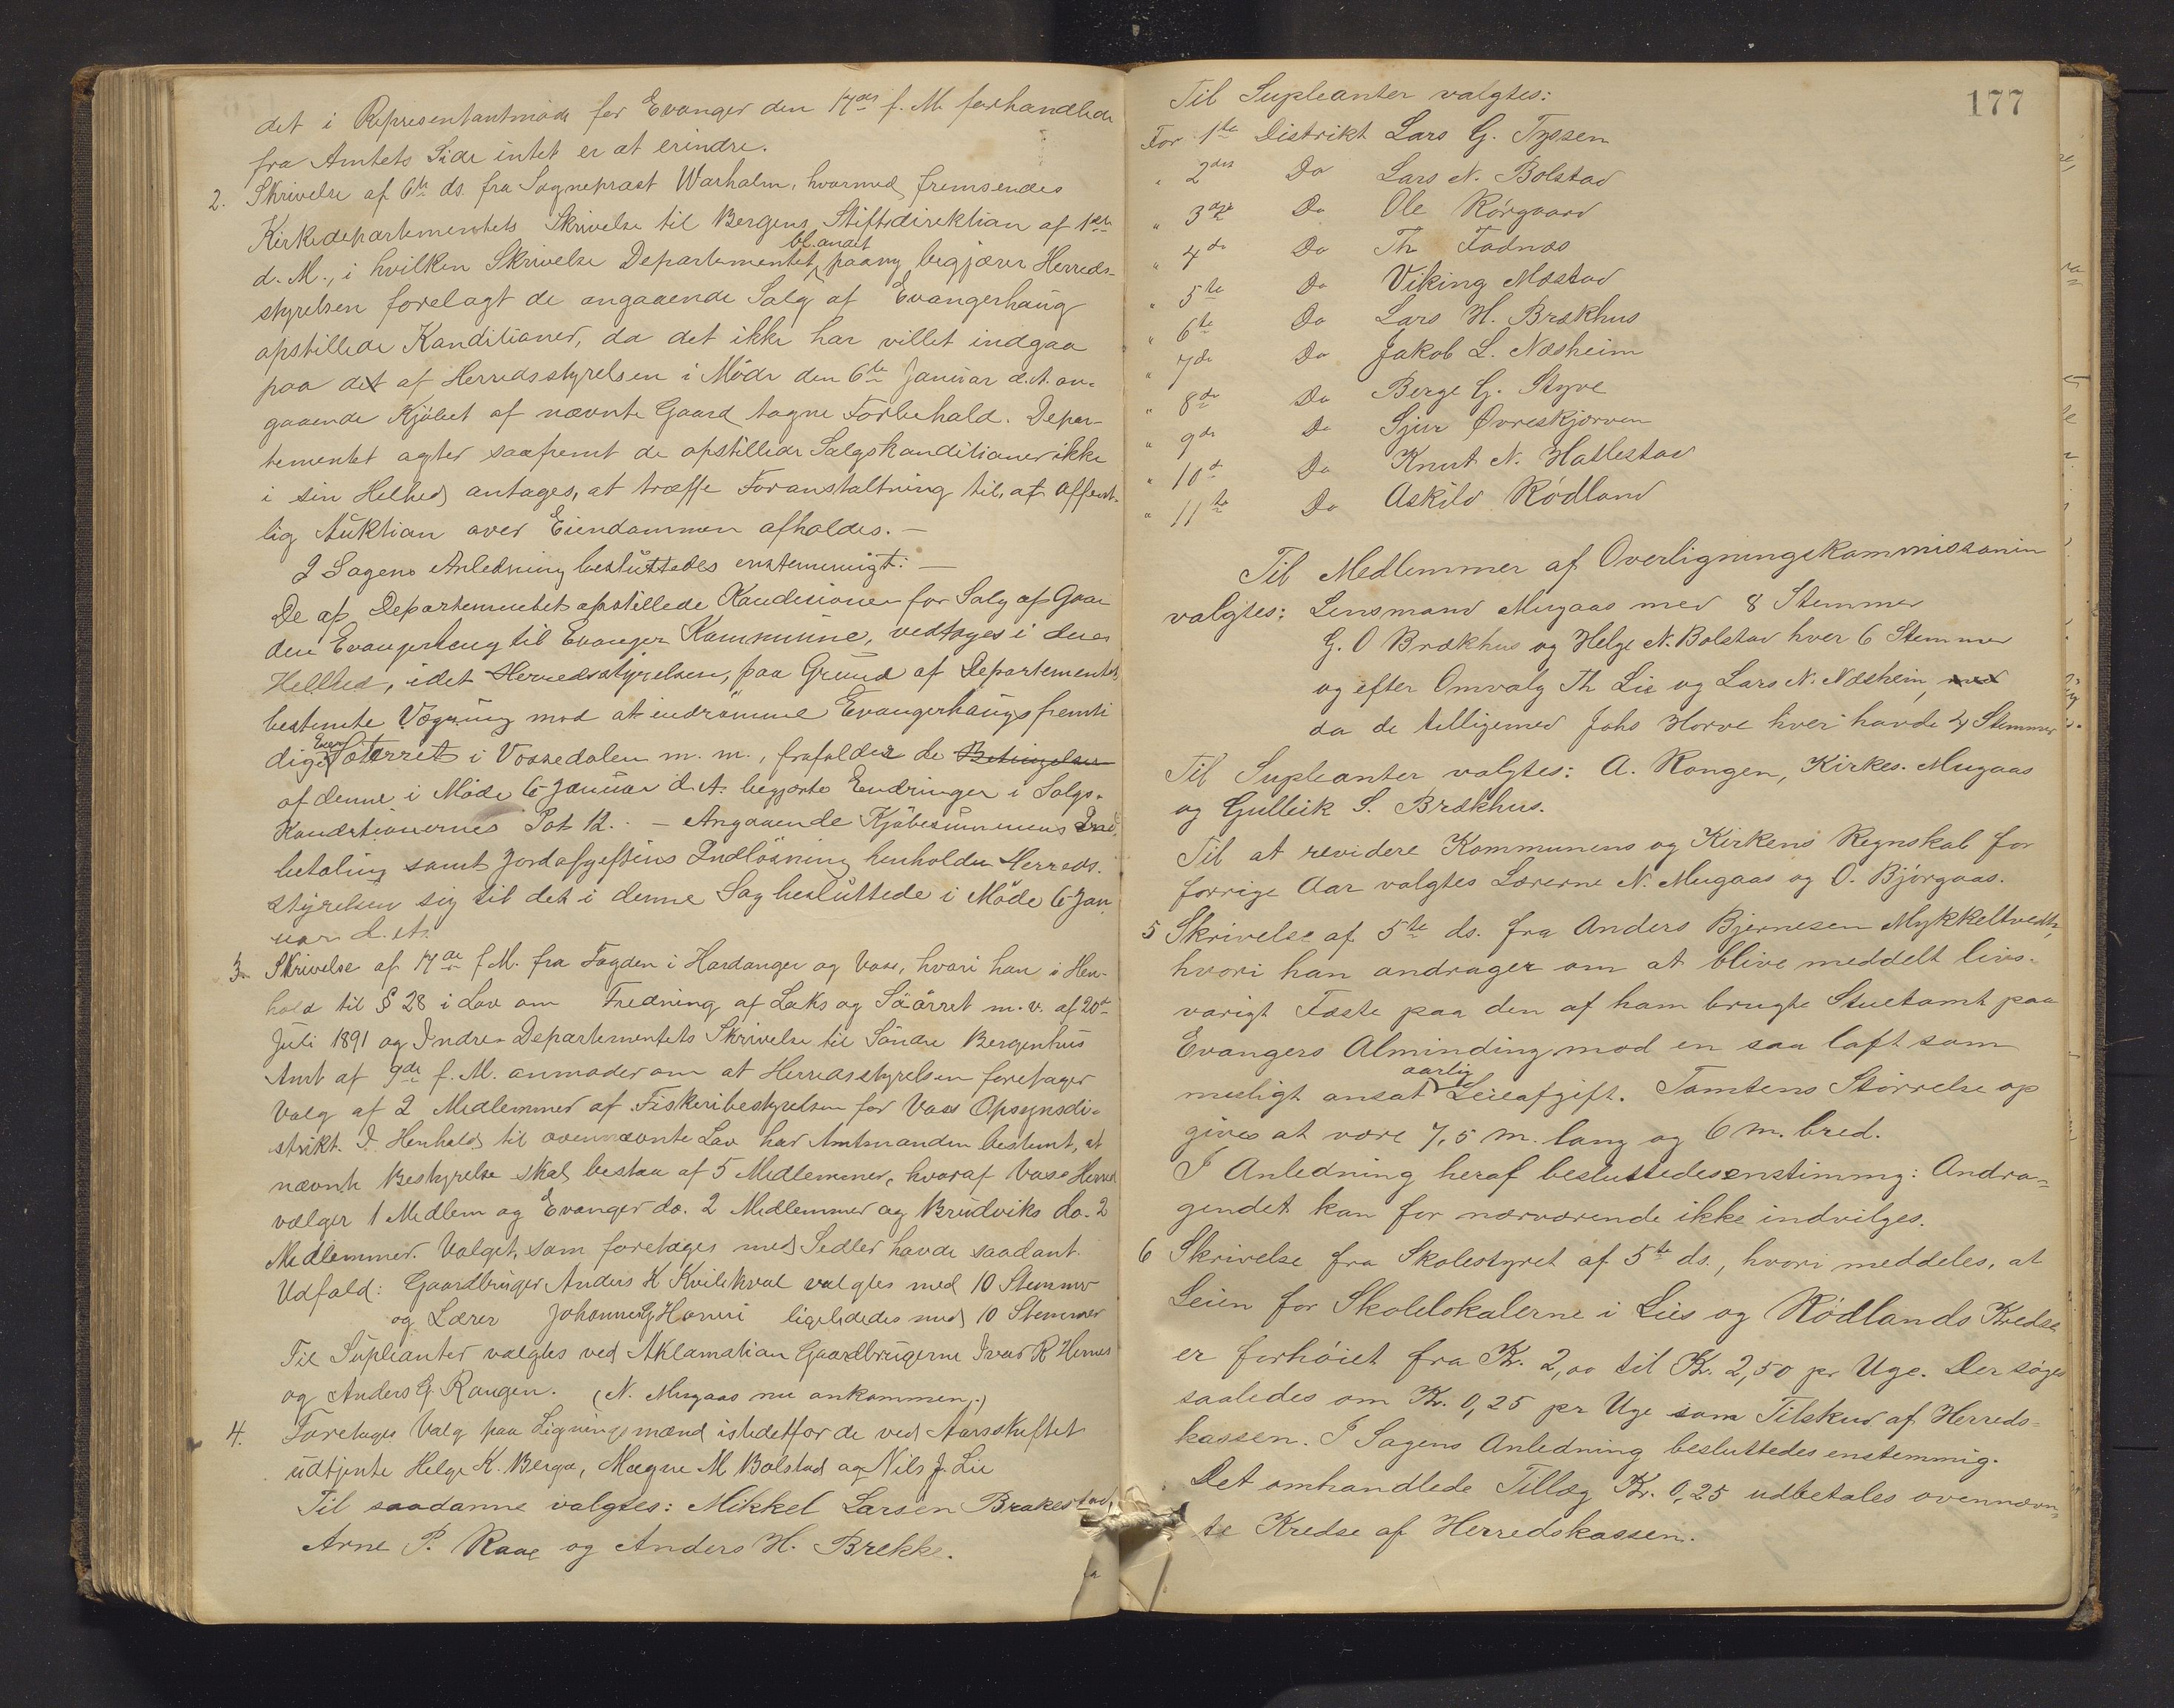 det i Representantmøde for Evanger den 17des f. M. forhandlede
fra Amtets Side intet er at erindre.
2. Skrivelse af 6te ds. fra Sognepræst Warholm, hvormed fremsendes
Kirkedepartementets Skrivelse til Bergens Stiftsdirektion af 1ste
d. M., i hvilken Skrivelse Departementet bl. andet paany begjærer Herreds-
styrelsen forelagt de angaaende Salg af Evangerhaug
opstillede Konditioner, da det ikke har villet indgaa
paa det af Herredsstyrelsen i Møde den 6te Januar d. A. an-
gaaende Kjøbet af nævnte Gaard tagne Forbehold. Depar-
tementet agter saafremt de opstillede Salgskonditioner ikke
i sin Helhed antages, at træffe Foranstaltning til, at offent-
lig Auktion over Eiendommen afholdes. —
I Sagens Anledning besluttedes enstemmigt: —
De af Departementet opstillede Kondisioner for Salg af Gaar
den Evangerhaug til Evanger Kommune, vedtages i deres
Helhed, idet Herredsstyrelsen, paa Grund af Departementets
bestemte Vægring mod at indrømme Evangerhaugs fremti
dige Eier Støterret i Vossedalen m. m., frafalder de Betingelser
af denne i Møde 6 Januar d. A. begjærte Endringer i Salgs-
Konditionernes Post 12. - Angaaende Kjøbesummens Ind-
betaling samt Jordafgiftens Indløsning henholder Herreds-
styrelsen sig til det i denne Sag besluttede i Møde 6 Jan
uar d. A.
3. Skrivelse af 17de f. M. fra Fogden i Hardanger og Voss, hvori han i Hen-
hold til § 28 i Lov om Fredning af Laks og Søørret m. v. af 20de
Juli 1891 og Indre-Departementets Skrivelse til Søndre Bergenhus
Amt af 9de f. M. anmoder om at Herredsstyrelsen foretager
Valg af 2 Medlemmer af Fiskeribestyrelsen for Voss Opsynsdi-
strikt. I Henhold til ovennævnte Lov har Amtmanden bestemt, at
nævnte Bestyrelse skal bestaa af 5 Medlemmer, hvoraf Voss Herred
vælger 1 Medlem og Evanger do. 2 Medlemmer og Brudviks do. 2
Medlemmer. Valget, som foretages med Sedler havde saadant
Udfald: Gaardbruger Anders K Kvilekval valgtes med 10 Stemmer
og Lærer Johannes G Horvei ligeledes med 10 Stemmer
Til Supleanter valgtes ved Aklamation Gaardbrugerne Ivar R Hernes
og Anders G. Rongen. (N. Mugaas nu ankommen.)
4. Foretages Valg paa Ligningsmænd istedetfor de ved Aarsskiftet
udtjente Helge K. Berge, Magne M Bolstad og Nils J. Lie
Til saadanne valgtes: Mikkel Larsen Brakestad,
Arne P. Raae og Anders H. Brekke.
177
Til Supleanter valgtes:
For 1ste Distrikt Lars G. Tyssen
" 2det Do Lars N. Bolstad
" 3die Do Ole Rørgaard
" 4de Do Th Fadnæs
" 5te Do Viking Mæstad
" 6te Do Lars H. Brækhus
" 7de Do Jakob L. Næsheim
" 8de Do Berge G. Styve
" 9de Do Sjur Øvreskjorven
" 10de Do Knut N. Hatlestad
" 11te Do Askild Rødland
Til Medlemmer af Overligningskommissonin
valgtes: Lensmand Mugaas med 8 Stemmer
G. O Brækhus og Helge N. Bolstad hver 6 Stemmer
og efter Omvalg Th Lie og Lars N. Næsheim, med
da de tilligemed Johs Horve hver havde 4 Stemmer.
Til Supleanter valgtes: A. Rongen, Kirkes. Mugaas
og Gulleik S. Brækhus.
Til at revidere Kommunens og Kirkens Regnskab for
forrige Aar valgtes Lærerne N. Mugaas og O. Bjørgaas.
5 Skrivelse af 5te ds. fra Anders Bjernesen Mykkeltvedt,
hvori han andrager om at blive meddelt livs-
varigt Fæste paa den af ham brugte Stuetomt paa
Evangers Alminding mod en saa laft som
muligt ansat aarlig Leieafgift. Tomtens Størrelse op
gives at være 7,5 m. lang og 6 m. bred.
I Anledning heraf besluttedes enstimmg: Andra-
gendet kan for nærværende ikke indvilges.
6 Skrivelse fra Skolestyret af 5te ds., hvori meddeles, at
Leien for Skolelokalerne i Lies og Rødlands Kredse
er forhøiet fra Kr. 2,00 til Kr. 2,50 pr Uge. Der søges
saaledes om Kr. 0,25 pr Uge som Tilskud af Herreds-
kassen. I Sagens Anledning besluttedes enstemmig.
Det omhandlede Tillæg Kr. 0,25 udbetales ovennævn-
te Kredse af Herredskassen.